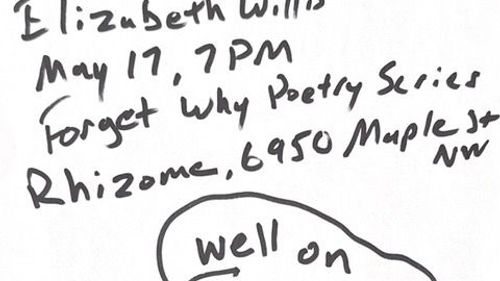 Elizabeth Willis
May 17, 7 PM
Forget Why Poetry Series
Rhizome, 6950 Maple St
NW
well on